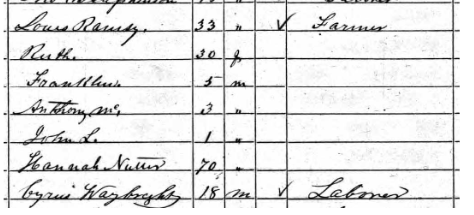 Louis Ramsy. 33 " ✓ Farmer
Ruth. 30 f
Franklin. 5 m
Anthony Mc. 3 "
John L. 1 "
Hannah Nutter 70 "
Cyrus Waybright 18 m ✓ Laborer